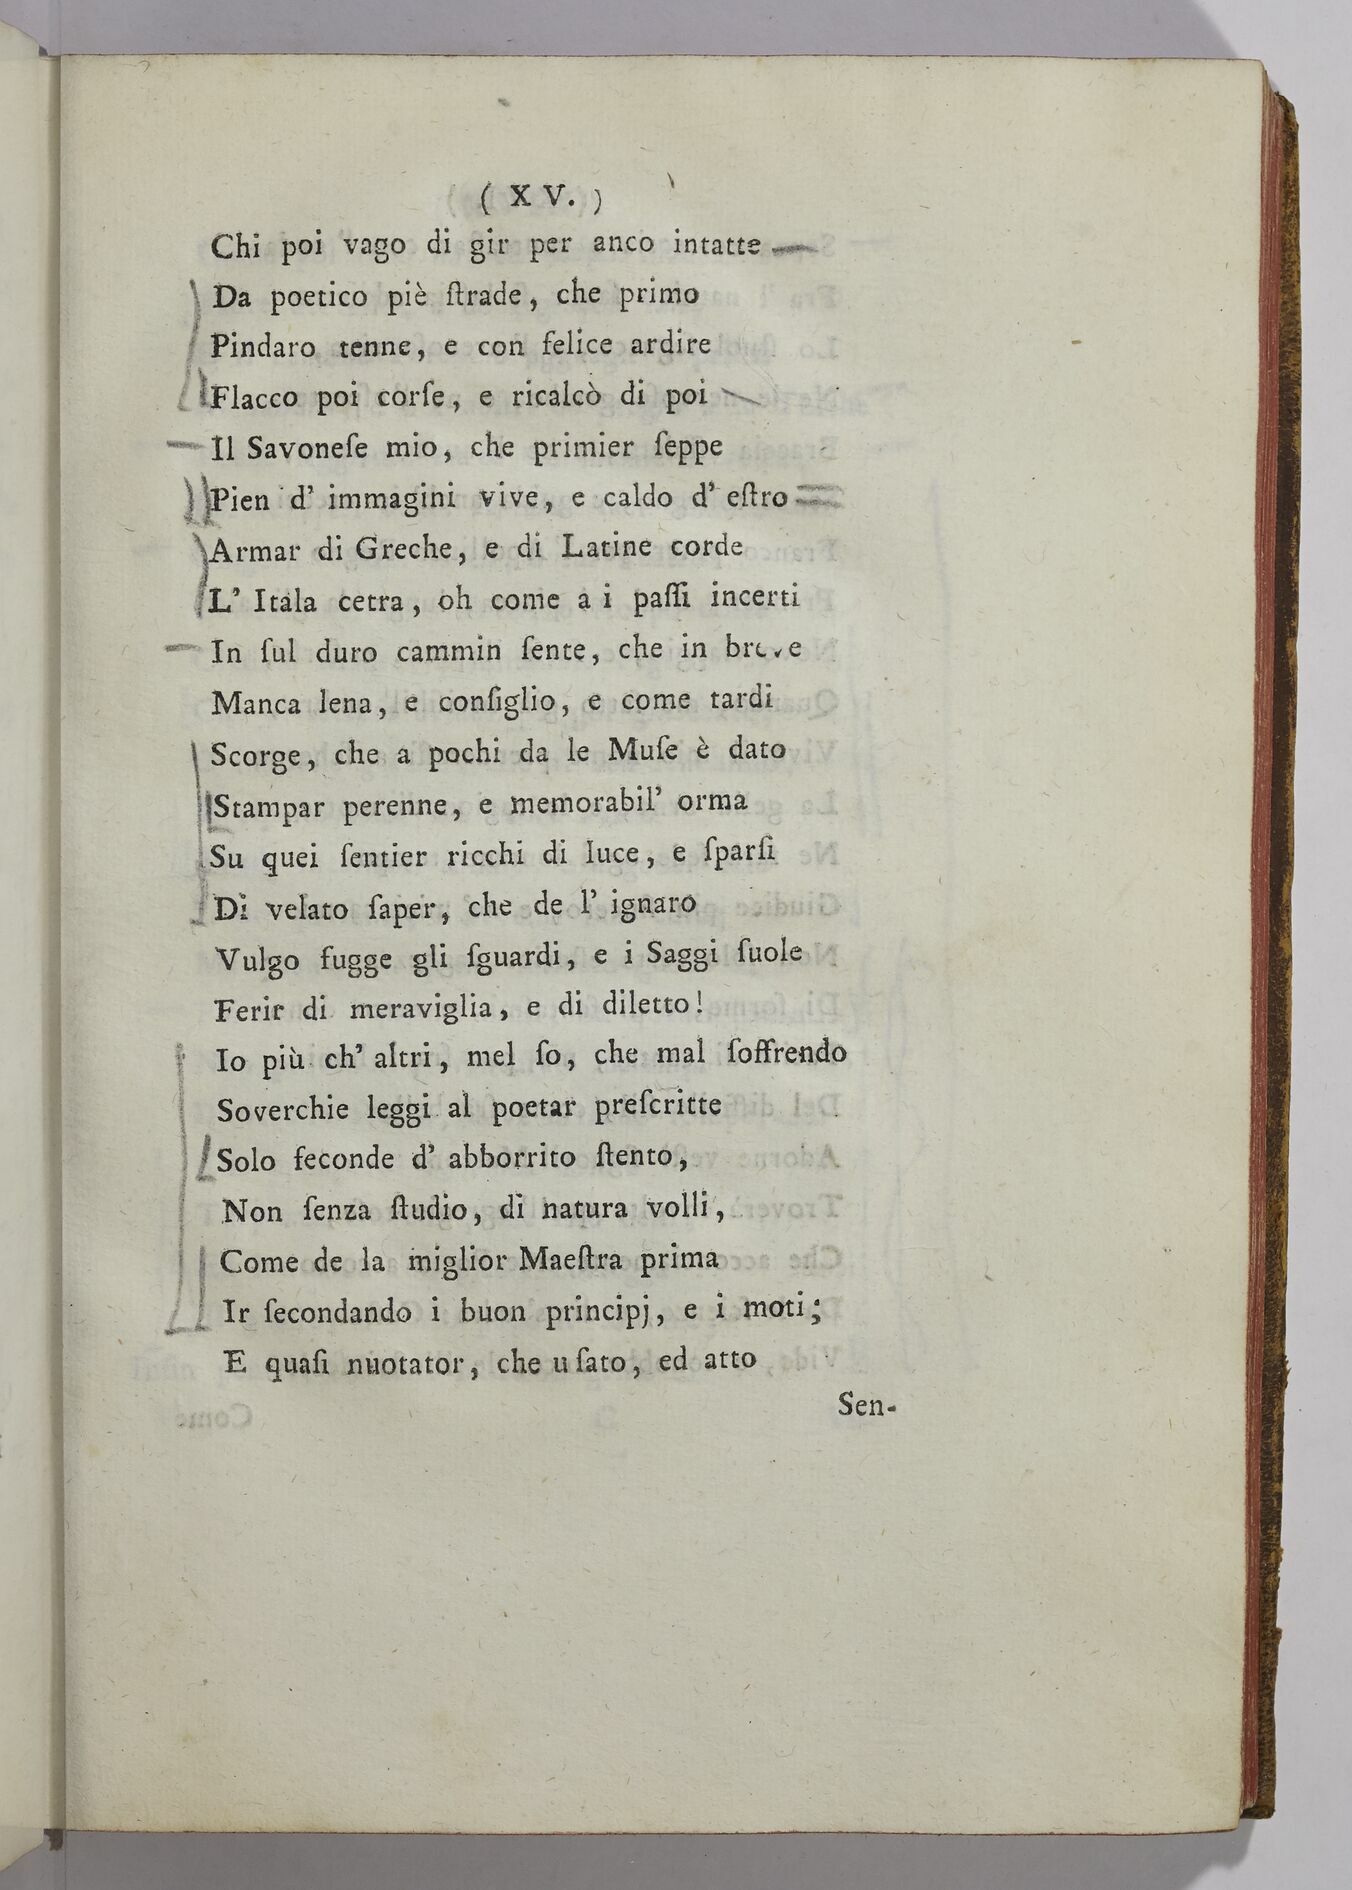 ( XV. )
Chi poi vago di gir per anco intatte
Da poetico piè ſtrade, che primo
Pindaro tenne, e con felice ardire
Flacco poi corſe, e ricalcò di poi
Il Savoneſe mio, che primier ſeppe
Pien d' immagini vive, e caldo d' eſtro
Armar di Greche, e di Latine corde
L' Itala cetra, oh come a i paſſi incerti
In ſul duro cammin ſente, che in breve
Manca lena, e conſiglio, e come tardi
Scorge, che a pochi da le Muſe è dato
Stampar perenne, e memorabil' orma
Su quei ſentier ricchi di luce, e ſparſi
Di velato ſaper, che de l' ignaro
Vulgo fugge gli ſguardi, e i Saggi ſuole
Ferir di meraviglia, e di diletto!
Io più ch' altri, mel ſo, che mal ſoffrendo
Soverchie leggi al poetar preſcritte
Solo feconde d' abborrito ſtento,
Non ſenza ſtudio, di natura volli,
Come de la miglior Maeſtra prima
Ir ſecondando i buon principj, e i moti;
E quaſi nuotator, che uſato, ed atto
Sen-